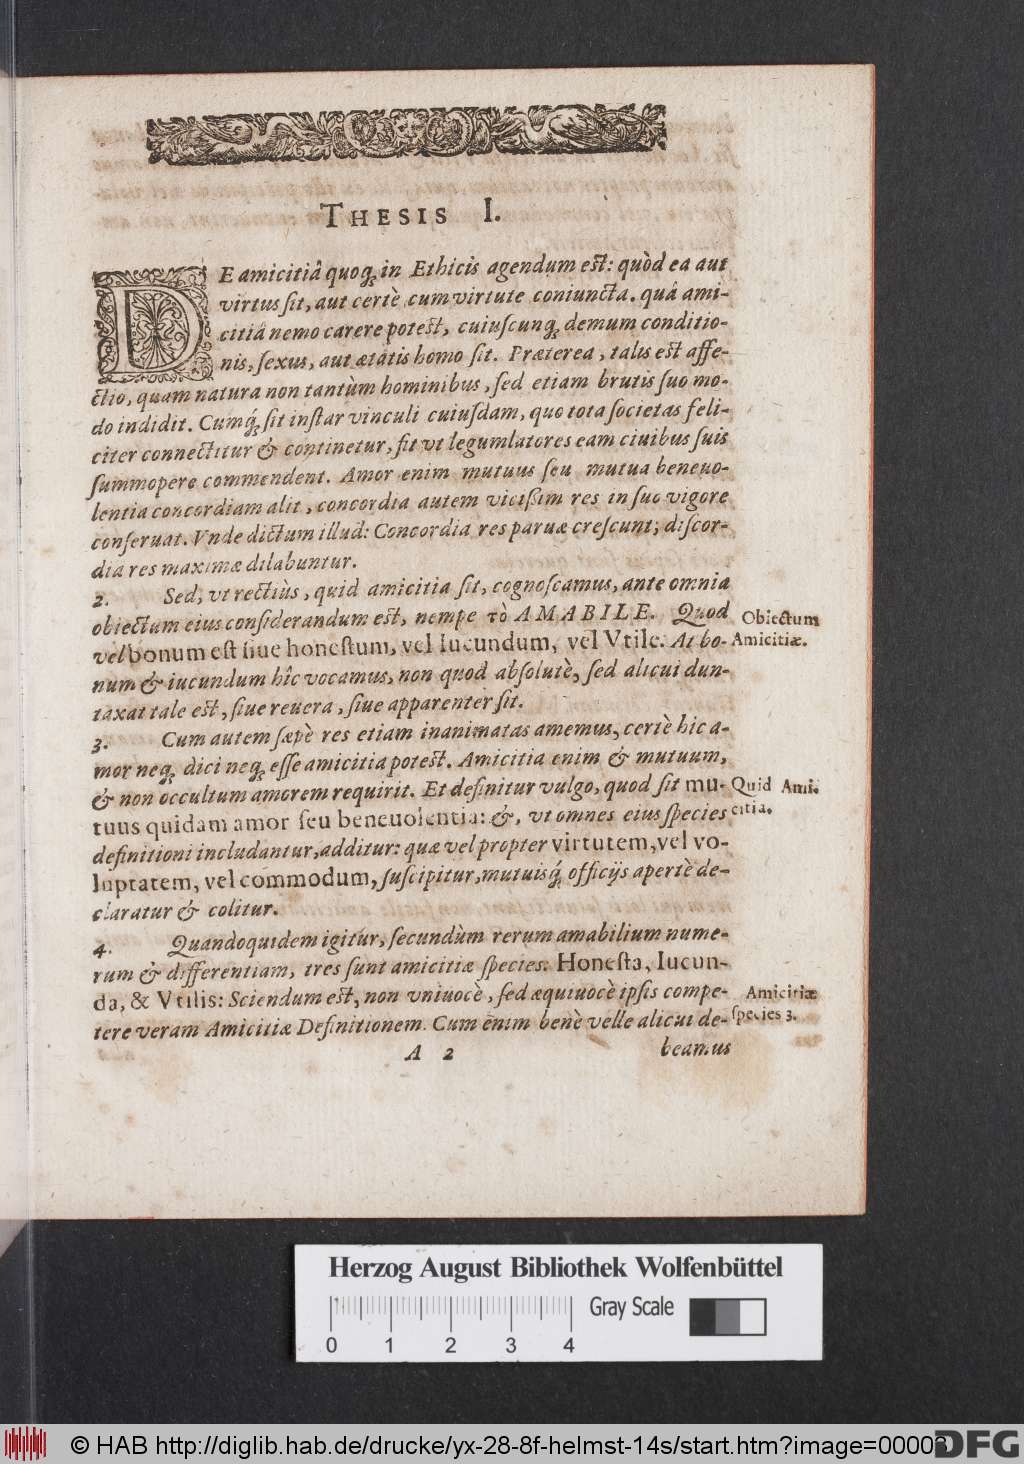 THESIS I.
DE amicitiâ quoq́; in Ethicis agendum est: quòd ea aut
virtus sit, aut certè cum virtute coniuncta. quâ ami-
citiâ nemo carere potest, cuiuscunq́; demum conditio-
nis, sexus, aut ætatis homo sit. Præterea, talis est affe-
ctio, quam natura non tantùm hominibus, sed etiam brutis suo mo-
do indidit. Cumq́; sit instar vinculi cuiusdam, quo tota societas feli-
citer connectitur & continetur, fit vt legumlatores eam ciuibus suis
summopere commendent. Amor enim mutuus seu mutua beneuo-
lentia concordiam alit, concordia autem vicißim res in suo vigore
conseruat. Vnde dictum illud: Concordia res paruæ crescunt; discor-
dia res maximæ dilabuntur.
2. Sed, vt rectiùs, quid amicitia sit, cognoscamus, ante omnia
obiectum eius considerandum est, nempe τὸ AMABILE. Quod
vel bonum est siue honestum, vel Iucundum, vel Vtile. At bo-
num & iucundum hîc vocamus, non quod absolutè, sed alicui dun-
taxat tale est, siue reuera, siue apparenter sit.
Obiectum
Amicitiæ.
3. Cum autem sæpè res etiam inanimatas amemus, certè hic a-
mor neq́; dici neq́; esse amicitia potest. Amicitia enim & mutuum,
& non occultum amorem requirit. Et definitur vulgo, quod sit mu-
tuus quidam amor seu beneuolentia: &, vt omnes eius species
definitioni includantur, additur: quæ vel propter virtutem, vel vo-
luptatem, vel commodum, suscipitur, mutuisq́; officijs apertè de-
claratur & colitur.
Quid Ami-
citia.
4. Quandoquidem igitur, secundùm rerum amabilium nume-
rum & differentiam, tres sunt amicitiæ species: Honesta, Iucun-
da, & Vtilis: Sciendum est, non vniuocè, sed æquiuocè ipsis compe-
tere veram Amicitiæ Definitionem. Cum enim benè velle alicui de-
Amicitiæ
species 3.
A 2 beamus
Herzog August Bibliothek Wolfenbüttel
0 1 2 3 4 Gray Scale
© HAB http://diglib.hab.de/drucke/yx-28-8f-helmst-14s/start.htm?image=00003
DFG